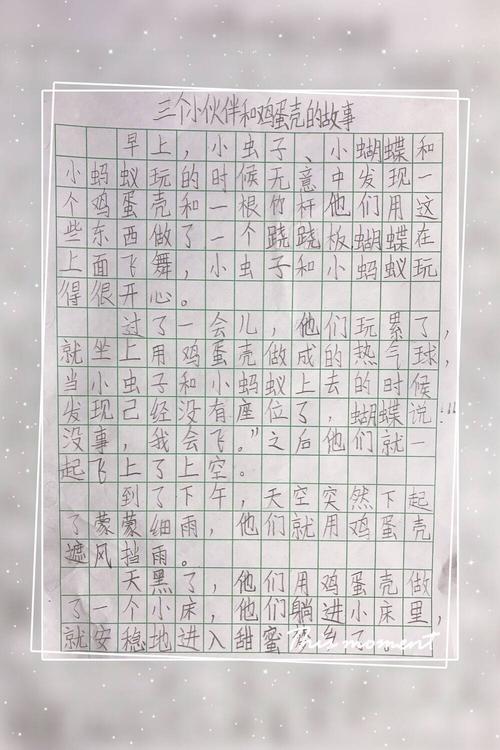 三个小伙伴和鸡蛋壳的故事
早上，小虫子、小蝴蝶和
小蚂蚁玩的时候无意中发现一
个鸡蛋壳和一根竹杆他们用这
些东西做了一个跷跷板蝴蝶在
上面飞舞，小虫子和小蚂蚁玩
得很开心。
过了一会儿，他们玩累了，
就坐上用鸡蛋壳做成的热气球，
当小虫子和小蚂蚁上去的时候
发现已经没有座位了，蝴蝶说：“
没事，我会飞。”之后他们就一
起飞上了上空。
到了下午，天空突然下起
了蒙蒙细雨，他们就用鸡蛋壳
遮风挡雨。
天黑了，他们用鸡蛋壳做
了一个小床，他们躺进小床里，
就安稳地进入甜蜜梦乡了。
This moment